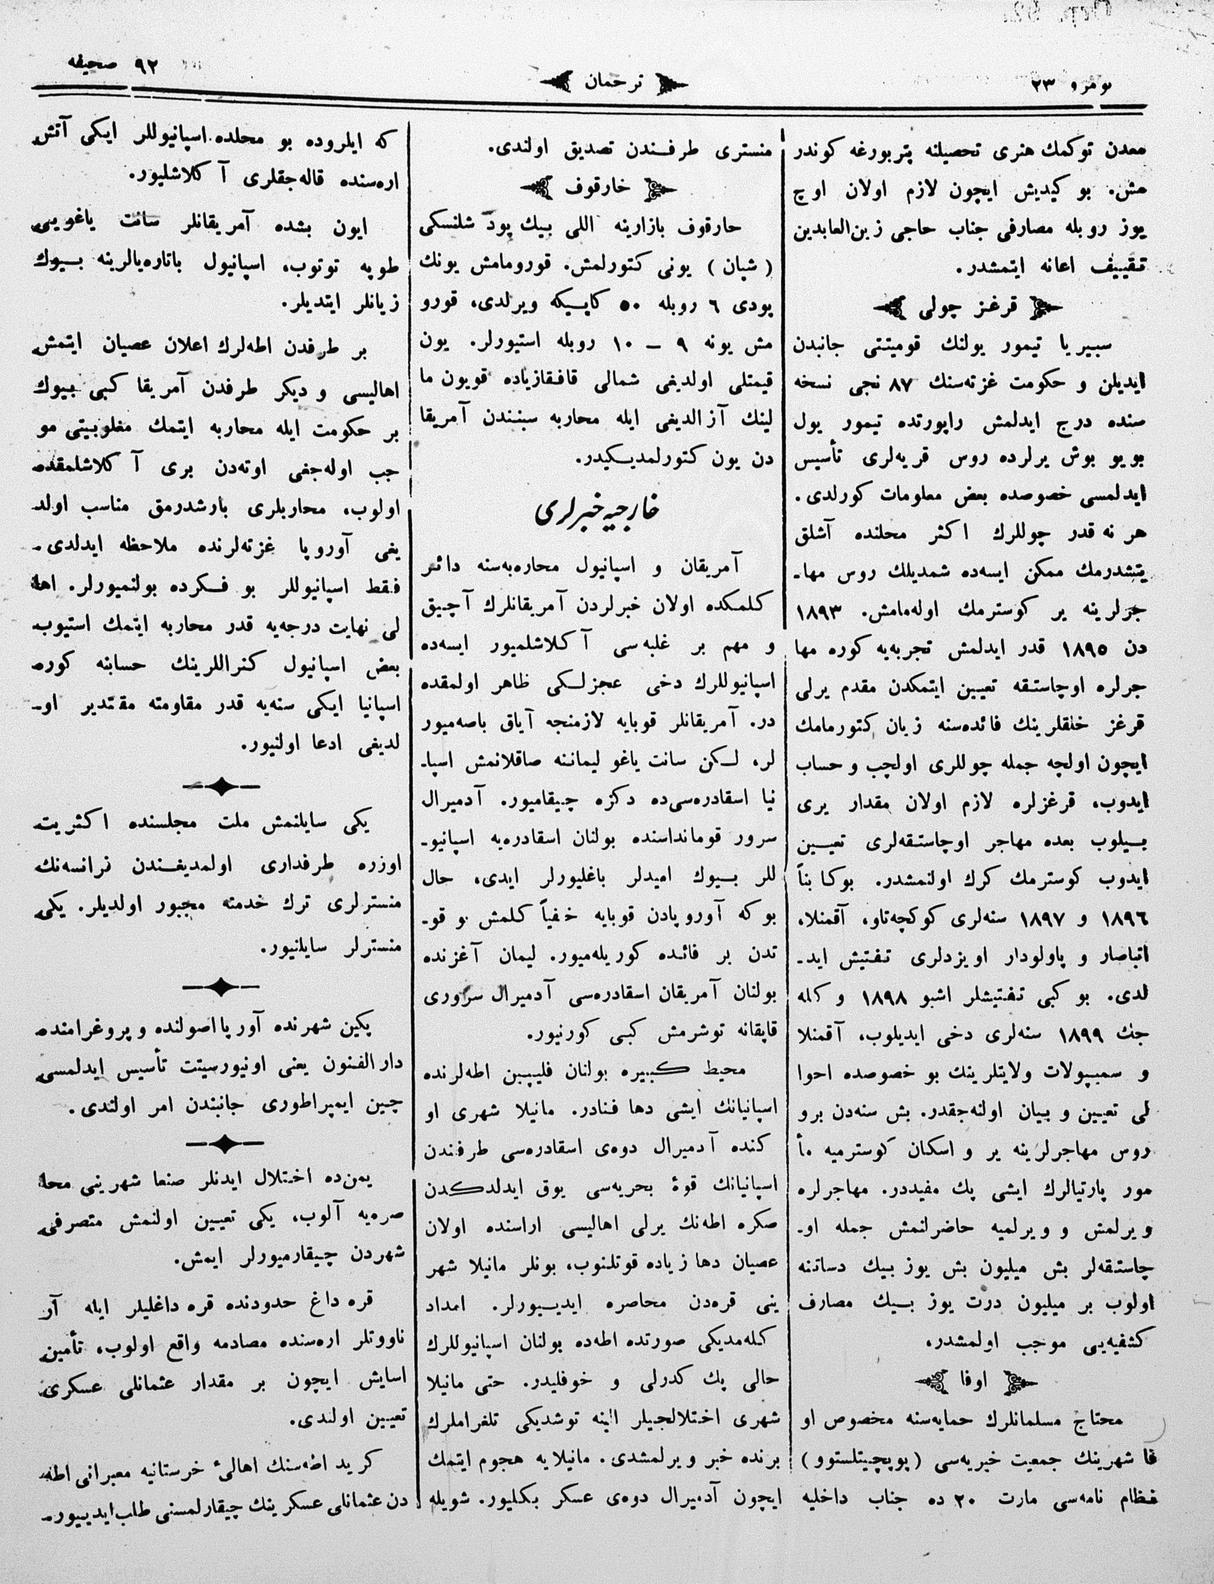 نومرو ٢٣
ترجمان
٩٢ صحيفه
معدن توكمك هنرى تحصيلنه پتربورغه كوندر
مش. بو كيديش ايچون لازم اولان اوچ
يوز روبله مصارفى جناب حاجى زين‌العابدين
تقييف اعانه ايتمشدر.
قرغز چولى
سبيريا تيمور يولنك قوميتتى جانبدن
ايديلن و حكومت غزته‌سنك ٨٧ نجى نسخه
سنده درج ايدلمش راپورتده تيمور يول
بويو بوش يرلرده روس قريه‌لرى تأسيس
ايدلمسى خصوصده بعض معلومات كورلدى.
هر نه قدر چوللرك اكثر محلنده آشلق
يتشدرمك ممكن ايسه‌ده شمديلك روس مها-
جرلرينه ير كوسترمك اوله‌مامش. ١٨٩٣
دن ١٨٩٥ قدر ايدلمش تجربه‌يه كوره مها
جرلره اوچاستقه تعيين ايتمكدن مقدم يرلى
قرغز خلقلرينك فائده‌سنه زيان كتورمامك
ايچون اولچه جمله چوللرى اولچب و حساب
ايدوب، قرغزلره لازم اولان مقدار يرى
بيلوب بعده مهاجر اوچاستقه‌لرى تعيين
ايدوب كوسترمك كرك اولنمشدر. بوكا بناً
١٨٩٦ و ١٨٩٧ سنه‌لرى كوكچه‌تاو، آقمنلا،
اتباصار و پاولودار اويزدلرى تفتيش ايد-
لدى. بو كبى تفتيشلر اشبو ١٨٩٨ و كله
جك ١٨٩٩ سنه‌لرى دخى ايديلوب، آقمنلا
و سمبپولات ولايتلرينك بو خصوصده احوا
لى تعيين و بيان اولنه‌جقدر. بش سنه‌دن برو
روس مهاجرلرينه ير و اسكان كوسترميه مأ
مور پارتيالرك ايشى پك مفيددر. مهاجرلره
ويرلمش و ويرلميه حاضرلنمش جمله او-
چاستقه‌لر بش ميليون بش يوز بيك دساتنه
اولوب بر ميليون درت يوز بيك مصارف
كشفيه‌يى موجب اولمشدر،
اوفا
محتاج مسلمانلرك حمايه‌سنه مخصوص او
فا شهرينك جمعيت خيريه‌سى (پوپچيتلستوو)
نظام نامه‌سى مارت ٢٠ ده جناب داخليه
منسترى طرفندن تصديق اولندى.
خارقوف
خارقوف بازارينه اللى بيك پود شلنسكى
(شپان) يونى كتورلمش. قورومامش يونك
پودى ٦ روبله ٥٠ كاپيكه ويرلدى، قورو
مش يونه ٩ – ١٠ روبله استيورلر. يون
قيمتلى اولديغى شمالى قافقازياده قويون ما
لينك آزالديغى ايله محاربه سببندن آمريقا
دن يون كتورلمديكيدر.
خارجيه خبرلرى
آمريقان و اسپانيول محاربه‌سنه دائر
كلمكده اولان خبرلردن آمريقانلرك آچيق
و مهم بر غلبه‌سى آكلاشلميور ايسه‌ده
اسپانيوللرك دخى عجزلكى ظاهر اولمقده
در. آمريقانلر قوبايه لازمنجه آياق باصه‌ميور
لر، لكن سانت ياغو ليماننه صاقلانمش اسپا-
نيا اسقادره‌سى‌ده دكزه چيقاميور. آدميرال
سرور قومانداسنده بولنان اسقادره‌يه اسپانيو-
للر بيوك اميدلر باغليورلر ايدى، حال
بوكه آوروپادن قوبايه خفياً كلمش و قو-
تدن بر فائده كوريله‌ميور. ليمان آغزنده
بولنان آمريقان اسقادره‌سى آدميرال سرورى
قاپقانه توشرمش كبى كورنيور.
محيط كبيره بولنان فليپبن اطه‌لرنده
اسپانيانك ايشى دها فنادر. مانيلا شهرى او
كنده آدميرال دوه‌ى اسقادره‌سى طرفندن
اسپانيانك قوۀ بحريه‌سى يوق ايدلدكدن
صكره اطه‌نك يرلى اهاليسى اراسنده اولان
عصيان دها زياده قوتلنوب، بونلر مانيلا شهر
ينى قره‌دن محاصره ايديیورلر. امداد
كله‌مديكى صورتده اطه‌ده بولنان اسپانيوللرك
حالى پك كدرلى و خوفليدر. حتى مانيلا
شهرى اختلالجيلر الينه توشديكى تلغراملرك
برنده خبر ويرلمشدى. مانيلايه هجوم ايتمك
ايچون آدميرال دوه‌ى عسكر بكليور. شويله
كه ايلروده بو محلده اسپانيوللر ايكى آتش
اره‌سنده قاله‌جقلرى آكلاشليور.
ايون بشده آمريقانلر سانت ياغويى
طوپه توتوب، اسپانيول باتاره‌يالرينه بيوك
زيانلر ايتديلر.
بر طرفدن اطه‌لرك اعلان عصيان ايتمش
اهاليسى و ديكر طرفدن آمريقا كبى بيوك
بر حكومت ايله محاربه ايتمك مغلوبيتى مو
جب اوله‌جغى اوته‌دن برى آكلاشلمقده
اولوب، محاربلرى بارشدرمق مناسب اولد
يغى آوروپا غزته‌لرنده ملاحظه ايدلدى.
فقط اسپانيوللر بو فكرده بولنميورلر. اها
لى نهايت درجه‌يه قدر محاربه ايتمك استيوب
بعض اسپانيول كنراللرينك حسابنه كوره
اسپانيا ايكى سنه‌يه قدر مقاومته مقتدير او-
لديغى ادعا اولنيور.
يكى سايلنمش ملت مجلسنده اكثريت
اوزره طرفدارى اولمديغندن فرانسه‌نك
منسترلرى ترك خدمته مجبور اولديلر. يكى
منسترلر سايلنيور.
پكين شهرنده آورپا اصولنده و پروغرامنده
دارالفنون يعنى اونيورسيتت تأسيس ايدلمسى
چين ايمپراطورى جانبندن امر اولندى.
يمن‌ده اختلال ايدنلر صنعا شهرينى محا
صره‌يه آلوب، يكى تعيين اولنمش متصرفى
شهردن چيقارميورلر ايمش.
قره داغ حدودنده قره داغليلر ايله آر
ناووتلر اره‌سنده مصادمه واقع اولوب، تأمين
اسايش ايچون بر مقدار عثمانلى عسكرى
تعيين اولندى.
كريد اطه‌سنك اهالئ خرستانيه معبرانى اطه
دن عثمانلى عسكرينك چيقارلمسنى طلب ايديیور-